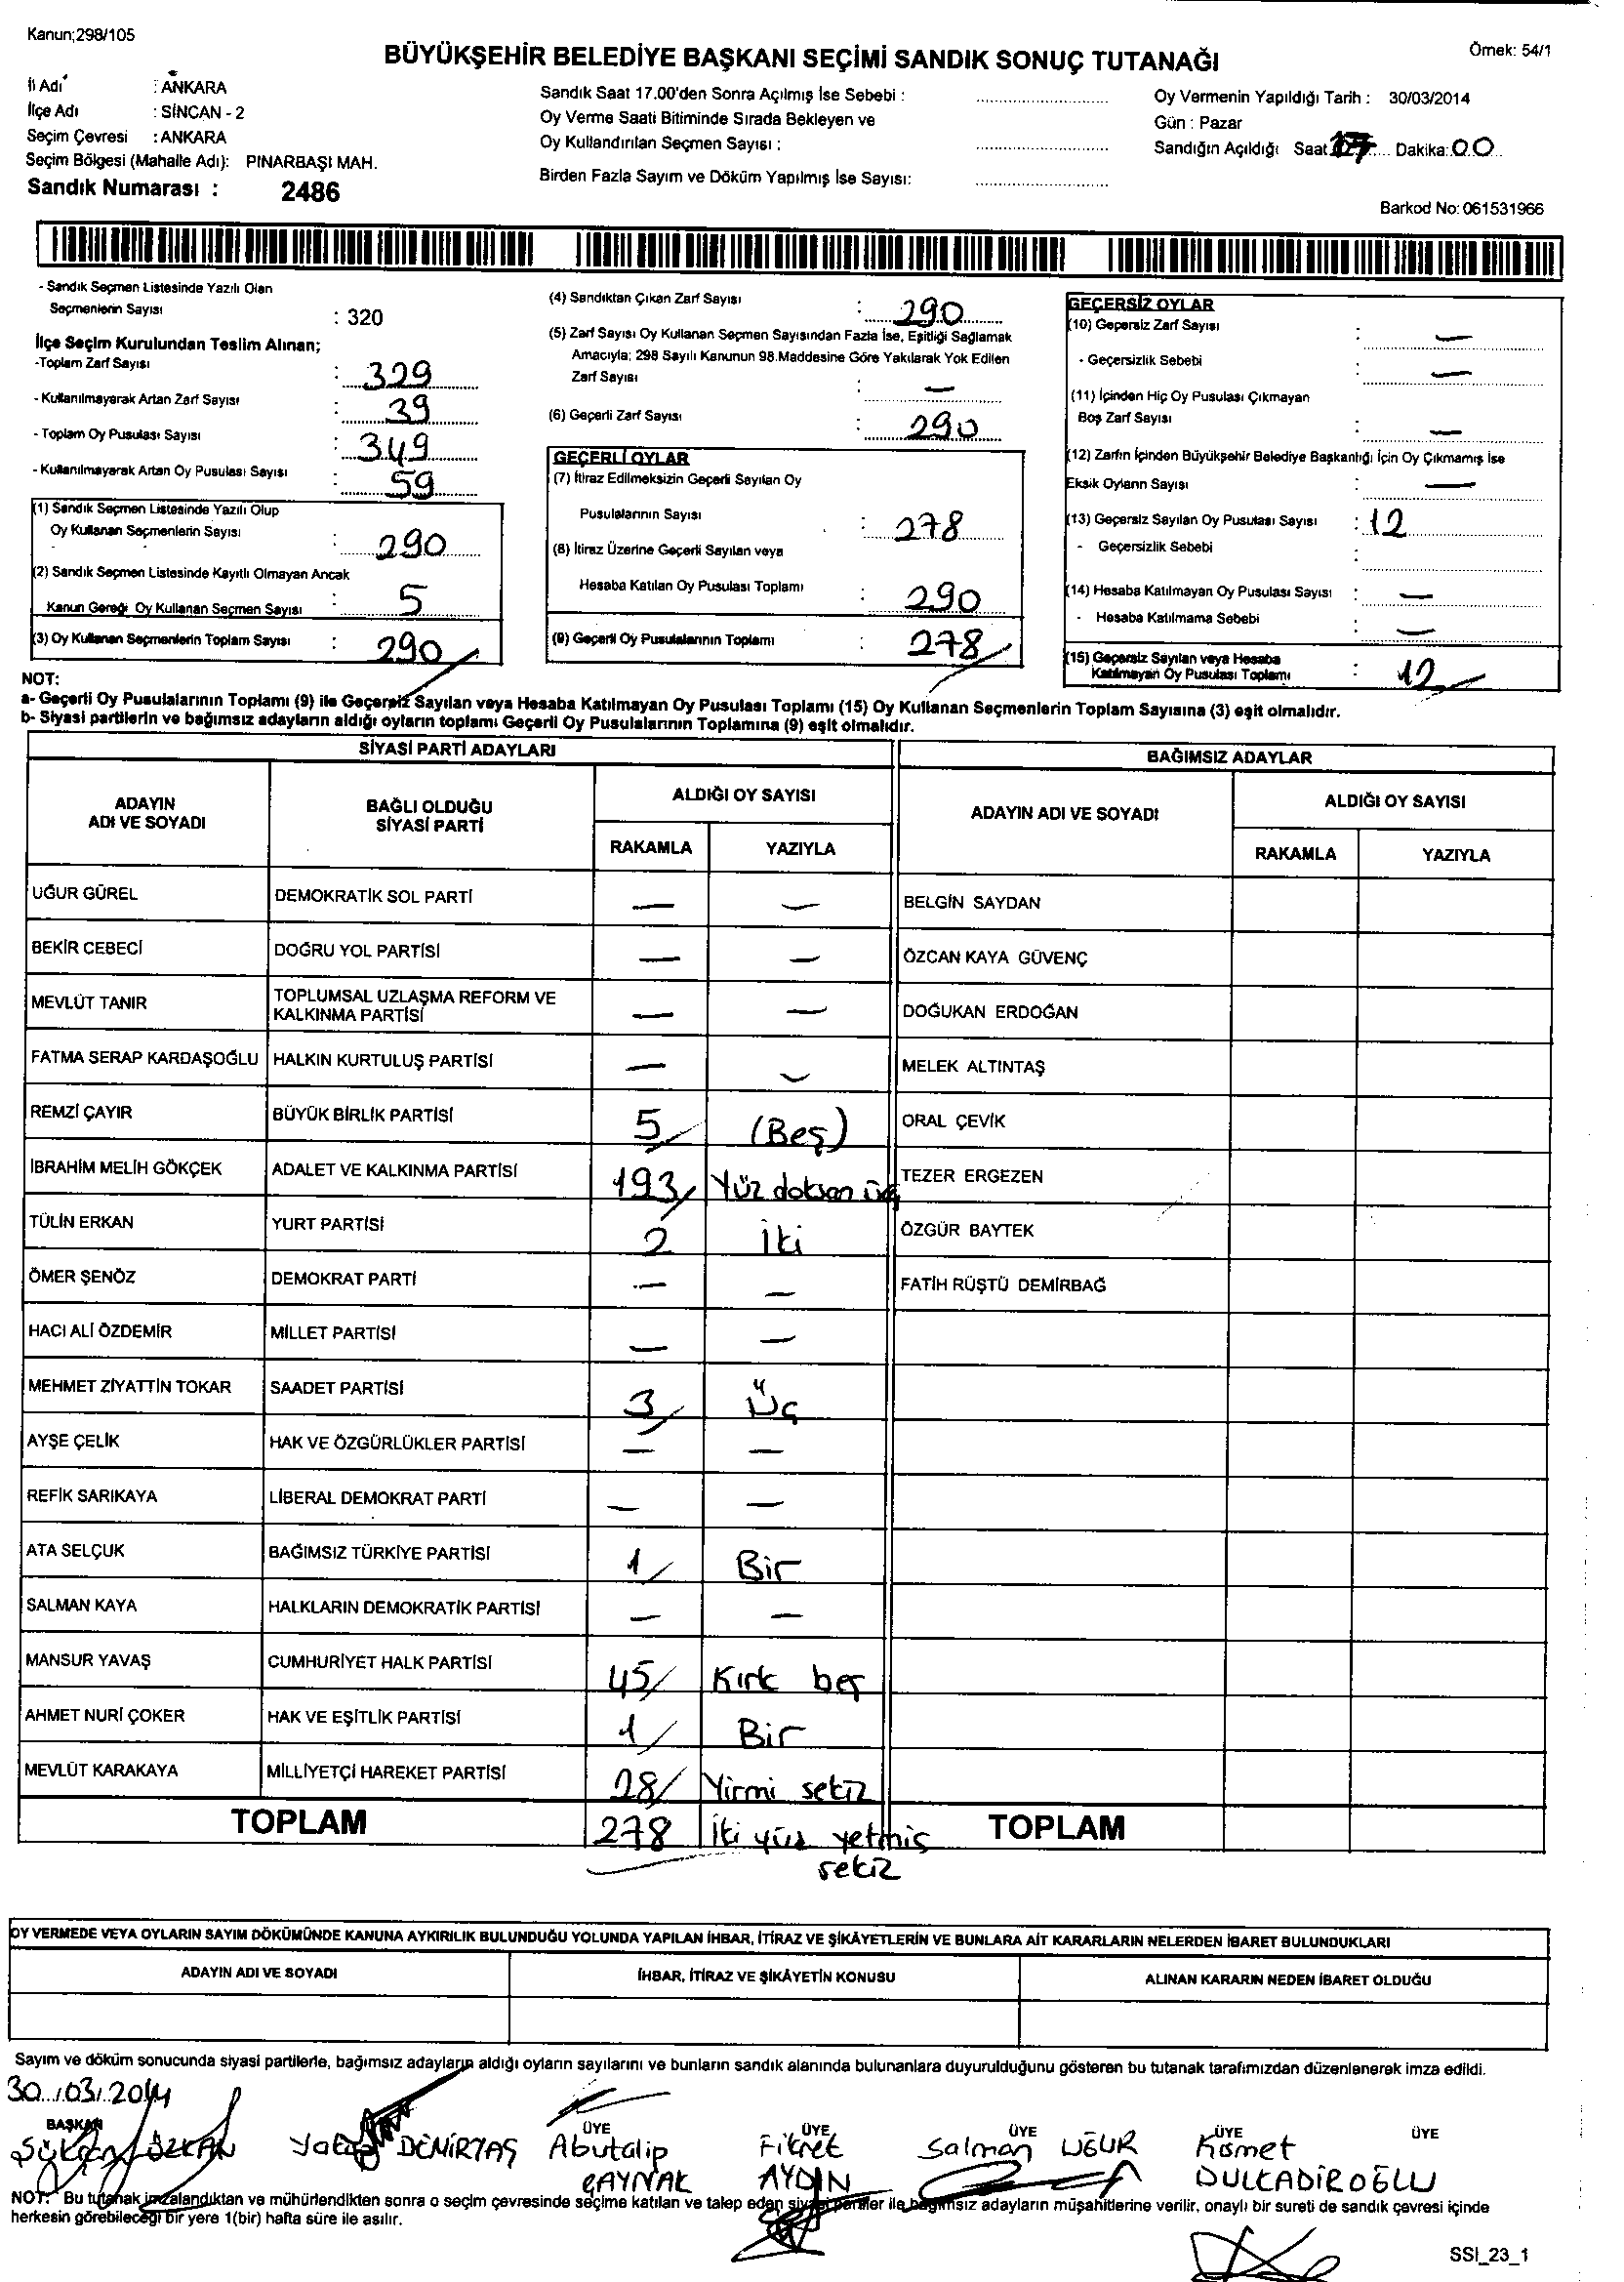 Kanun;298/105
BÜYÜKŞEHİR BELEDİYE BAŞKANI SEÇİMİ SANDIK SONUÇ TUTANAĞI
Örnek: 54/1
İl Adı : ANKARA
İlçe Adı : SİNCAN - 2
Seçim Çevresi : ANKARA
Seçim Bölgesi (Mahalle Adı): PINARBAŞI MAH.
Sandık Numarası : 2486
Sandık Saat 17.00'den Sonra Açılmış İse Sebebi :
Oy Verme Saati Bitiminde Sırada Bekleyen ve
Oy Kullandırılan Seçmen Sayısı :
Birden Fazla Sayım ve Döküm Yapılmış İse Sayısı:
Oy Vermenin Yapıldığı Tarih : 30/03/2014
Gün : Pazar
Sandığın Açıldığı Saat 17 Dakika: 00
Barkod No: 061531966
- Sandık Seçmen Listesinde Yazılı Olan
Seçmenlerin Sayısı : 320
İlçe Seçim Kurulundan Teslim Alınan;
-Toplam Zarf Sayısı : 329
- Kullanılmayarak Artan Zarf Sayısı : 39
- Toplam Oy Pusulası Sayısı : 349
- Kullanılmayarak Artan Oy Pusulası Sayısı : 59
(1) Sandık Seçmen Listesinde Yazılı Olup
Oy Kullanan Seçmenlerin Sayısı : 290
(2) Sandık Seçmen Listesinde Kayıtlı Olmayan Ancak
Kanun Gereği Oy Kullanan Seçmen Sayısı : 5
(3) Oy Kullanan Seçmenlerin Toplam Sayısı : 290
(4) Sandıktan Çıkan Zarf Sayısı : 290
(5) Zarf Sayısı Oy Kullanan Seçmen Sayısından Fazla İse, Eşitliği Sağlamak
Amacıyla; 298 Sayılı Kanunun 98.Maddesine Göre Yakılarak Yok Edilen
Zarf Sayısı : —
(6) Geçerli Zarf Sayısı : 290
GEÇERLİ OYLAR
(7) İtiraz Edilmeksizin Geçerli Sayılan Oy
Pusulalarının Sayısı : 278
(8) İtiraz Üzerine Geçerli Sayılan veya
Hesaba Katılan Oy Pusulası Toplamı : 290
(9) Geçerli Oy Pusulalarının Toplamı : 278
GEÇERSİZ OYLAR
(10) Geçersiz Zarf Sayısı : —
- Geçersizlik Sebebi : —
(11) İçinden Hiç Oy Pusulası Çıkmayan
Boş Zarf Sayısı : —
(12) Zarfın İçinden Büyükşehir Belediye Başkanlığı İçin Oy Çıkmamış İse
Eksik Oyların Sayısı : —
(13) Geçersiz Sayılan Oy Pusulası Sayısı : 12
- Geçersizlik Sebebi :
(14) Hesaba Katılmayan Oy Pusulası Sayısı : —
- Hesaba Katılmama Sebebi : —
(15) Geçersiz Sayılan veya Hesaba
Katılmayan Oy Pusulası Toplamı : 12
NOT:
a- Geçerli Oy Pusulalarının Toplamı (9) ile Geçersiz Sayılan veya Hesaba Katılmayan Oy Pusulası Toplamı (15) Oy Kullanan Seçmenlerin Toplam Sayısına (3) eşit olmalıdır.
b- Siyasi partilerin ve bağımsız adayların aldığı oyların toplamı Geçerli Oy Pusulalarının Toplamına (9) eşit olmalıdır.
SİYASİ PARTİ ADAYLARI BAĞIMSIZ ADAYLAR
ADAYIN ADI VE SOYADI
BAĞLI OLDUĞU SİYASİ PARTİ
ALDIĞI OY SAYISI
RAKAMLA YAZIYLA
ADAYIN ADI VE SOYADI
ALDIĞI OY SAYISI
RAKAMLA YAZIYLA
UĞUR GÜREL DEMOKRATİK SOL PARTİ — — BELGİN SAYDAN
BEKİR CEBECİ DOĞRU YOL PARTİSİ — — ÖZCAN KAYA GÜVENÇ
MEVLÜT TANIR TOPLUMSAL UZLAŞMA REFORM VE KALKINMA PARTİSİ — — DOĞUKAN ERDOĞAN
FATMA SERAP KARDAŞOĞLU HALKIN KURTULUŞ PARTİSİ — — MELEK ALTINTAŞ
REMZİ ÇAYIR BÜYÜK BİRLİK PARTİSİ 5 (Beş) ORAL ÇEVİK
İBRAHİM MELİH GÖKÇEK ADALET VE KALKINMA PARTİSİ 193 Yüz doksan üç TEZER ERGEZEN
TÜLİN ERKAN YURT PARTİSİ 2 İki ÖZGÜR BAYTEK
ÖMER ŞENÖZ DEMOKRAT PARTİ — — FATİH RÜŞTÜ DEMİRBAĞ
HACI ALİ ÖZDEMİR MİLLET PARTİSİ — —
MEHMET ZİYATTİN TOKAR SAADET PARTİSİ 3 Üç
AYŞE ÇELİK HAK VE ÖZGÜRLÜKLER PARTİSİ — —
REFİK SARIKAYA LİBERAL DEMOKRAT PARTİ — —
ATA SELÇUK BAĞIMSIZ TÜRKİYE PARTİSİ 1 Bir
SALMAN KAYA HALKLARIN DEMOKRATİK PARTİSİ — —
MANSUR YAVAŞ CUMHURİYET HALK PARTİSİ 45 Kırk beş
AHMET NURİ ÇOKER HAK VE EŞİTLİK PARTİSİ 1 Bir
MEVLÜT KARAKAYA MİLLİYETÇİ HAREKET PARTİSİ 28 Yirmi sekiz
TOPLAM 278 İki yüz yetmiş sekiz TOPLAM
OY VERMEDE VEYA OYLARIN SAYIM DÖKÜMÜNDE KANUNA AYKIRILIK BULUNDUĞU YOLUNDA YAPILAN İHBAR, İTİRAZ VE ŞİKÂYETLERİN VE BUNLARA AİT KARARLARIN NELERDEN İBARET BULUNDUKLARI
ADAYIN ADI VE SOYADI İHBAR, İTİRAZ VE ŞİKÂYETİN KONUSU ALINAN KARARIN NEDEN İBARET OLDUĞU
Sayım ve döküm sonucunda siyasi partilerle, bağımsız adayların aldığı oyların sayılarını ve bunların sandık alanında bulunanlara duyurulduğunu gösteren bu tutanak tarafımızdan düzenlenerek imza edildi.
30/03/2014
BAŞKAN ÜYE ÜYE ÜYE ÜYE ÜYE
ÖZKAN DEMİRTAŞ Abutalip KAYNAK Fikret AYDIN Salman UĞUR Kısmet DULKADİROĞLU
NOT: Bu tutanak imzalandıktan ve mühürlendikten sonra o seçim çevresinde seçime katılan ve talep eden siyasi partiler ile bağımsız adayların müşahitlerine verilir, onaylı bir sureti de sandık çevresi içinde
herkesin görebileceği bir yere 1(bir) hafta süre ile asılır.
SSI_23_1